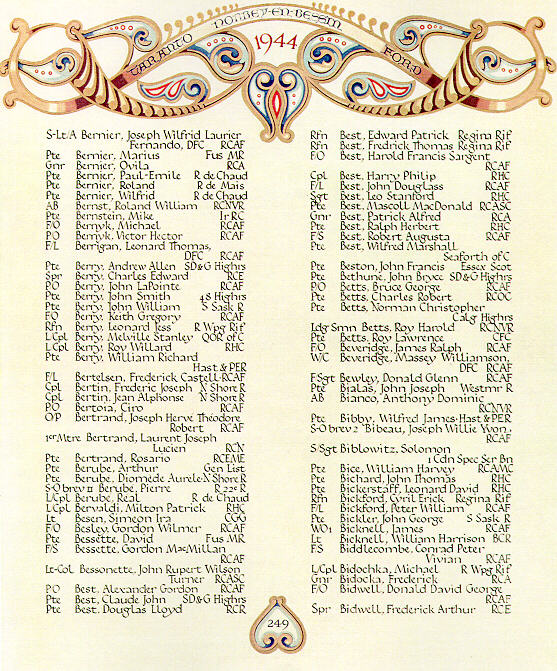 NORREY-EN-BESSIN
TARANTO
1944
FORD
S-Lt/A Bernier, Joseph Wilfrid Laurier
Fernando, DFC RCAF
Pte Bernier, Marius Fus MR
Gnr Bernier, Ovila RCA
Pte Bernier, Paul-Emile R de Chaud
Pte Bernier, Roland R de Mais
Pte Bernier, Wilfrid R de Chaud
AB Bernst, Roland William RCNVR
Pte Bernstein, Mike Ir RC
F/O Bernyk, Michael RCAF
P/O Bernyk, Victor Hector RCAF
F/L Berrigan, Leonard Thomas,
DFC RCAF
Pte Berry, Andrew Allen SD&G Highrs
Spr Berry, Charles Edward RCE
P/O Berry, John LaPointe RCAF
Pte Berry, John Smith 48 Highrs
Pte Berry, John William S Sask R
F/O Berry, Keith Gregory RCAF
Rfn Berry, Leonard Jess R Wpg Rif
L/Cpl Berry, Melville Stanley QOR of C
L/Cpl Berry, Roy Willard RHC
Pte Berry, William Richard
Hast & PER
F/L Bertelsen, Frederick Castell RCAF
Cpl Bertin, Frederic Joseph N Shore R
Cpl Bertin, Jean Alphonse N Shore R
P/O Bertoia, Ciro RCAF
O/P Bertrand, Joseph Hervé Théodore
Robert RCAF
1er Mtre Bertrand, Laurent Joseph
Lucien RCN
Pte Bertrand, Rosario RCEME
Pte Berube, Arthur Gen List
Pte Berube, Diomede Aurele N Shore R
S-O brev II Berubé, Pierre R 22e R
L/Cpl Berube, Real R de Chaud
L/Cpl Bervaldi, Milton Patrick RHC
Lt Besen, Simeon Ira CGG
F/O Besley, Gordon Wilmer RCAF
Pte Bessette, David Fus MR
F/S Bessette, Gordon MacMillan
RCAF
Lt-Col Bessonette, John Rupert Wilson
Turner RCASC
P/O Best, Alexander Gordon RCAF
Pte Best, Claude John SD&G Highrs
Pte Best, Douglas Lloyd RCR
Rfn Best, Edward Patrick Regina Rif
Rfn Best, Fredrick Thomas Regina Rif
F/O Best, Harold Francis Sargent
RCAF
Cpl Best, Harry Philip RHC
F/L Best, John Douglass RCAF
Sgt Best, Leo Stanford RHC
Pte Best, Mascoll MacDonald RCASC
Gnr Best, Patrick Alfred RCA
Pte Best, Ralph Herbert RHC
F/S Best, Robert Augusta RCAF
Pte Best, Wilfred Marshall
Seaforth of C
Pte Beston, John Francis Essex Scot
Pte Bethune, John Bryce SD&G Highrs
P/O Betts, Bruce George RCAF
Pte Betts, Charles Robert RCOC
Pte Betts, Norman Christopher
Calg Highrs
Ldg Smn Betts, Roy Harold RCNVR
Pte Betts, Roy Lawrence CFC
F/O Beveridge, James Ralph RCAF
W/C Beveridge, Massey Williamson,
DFC RCAF
F Sgt Bewley, Donald Glenn RCAF
Pte Bialas, John Joseph Westmr R
AB Bianco, Anthony Dominic
RCNVR
Pte Bibby, Wilfred James Hast & PER
S-O brev 2 Bibeau, Joseph Willie Yvon,
RCAF
S/Sgt Biblowitz, Solomon
1 Cdn Spec Ser Bn
Pte Bice, William Harvey RCAMC
Pte Bichard, John Thomas RHC
Pte Bickerstaff, Leonard David RHC
Rfn Bickford, Cyril Erick Regina Rif
F/L Bickford, Peter William RCAF
Pte Bickler, John George S Sask R
WO1 Bicknell, James RCAF
Lt Bicknell, William Harrison BCR
F/S Biddlecombe, Conrad Peter
Vivian RCAF
L/Cpl Bidochka, Michael R Wpg Rif
Gnr Bidocka, Frederick RCA
F/O Bidwell, Donald David George
RCAF
Spr Bidwell, Frederick Arthur RCE
249